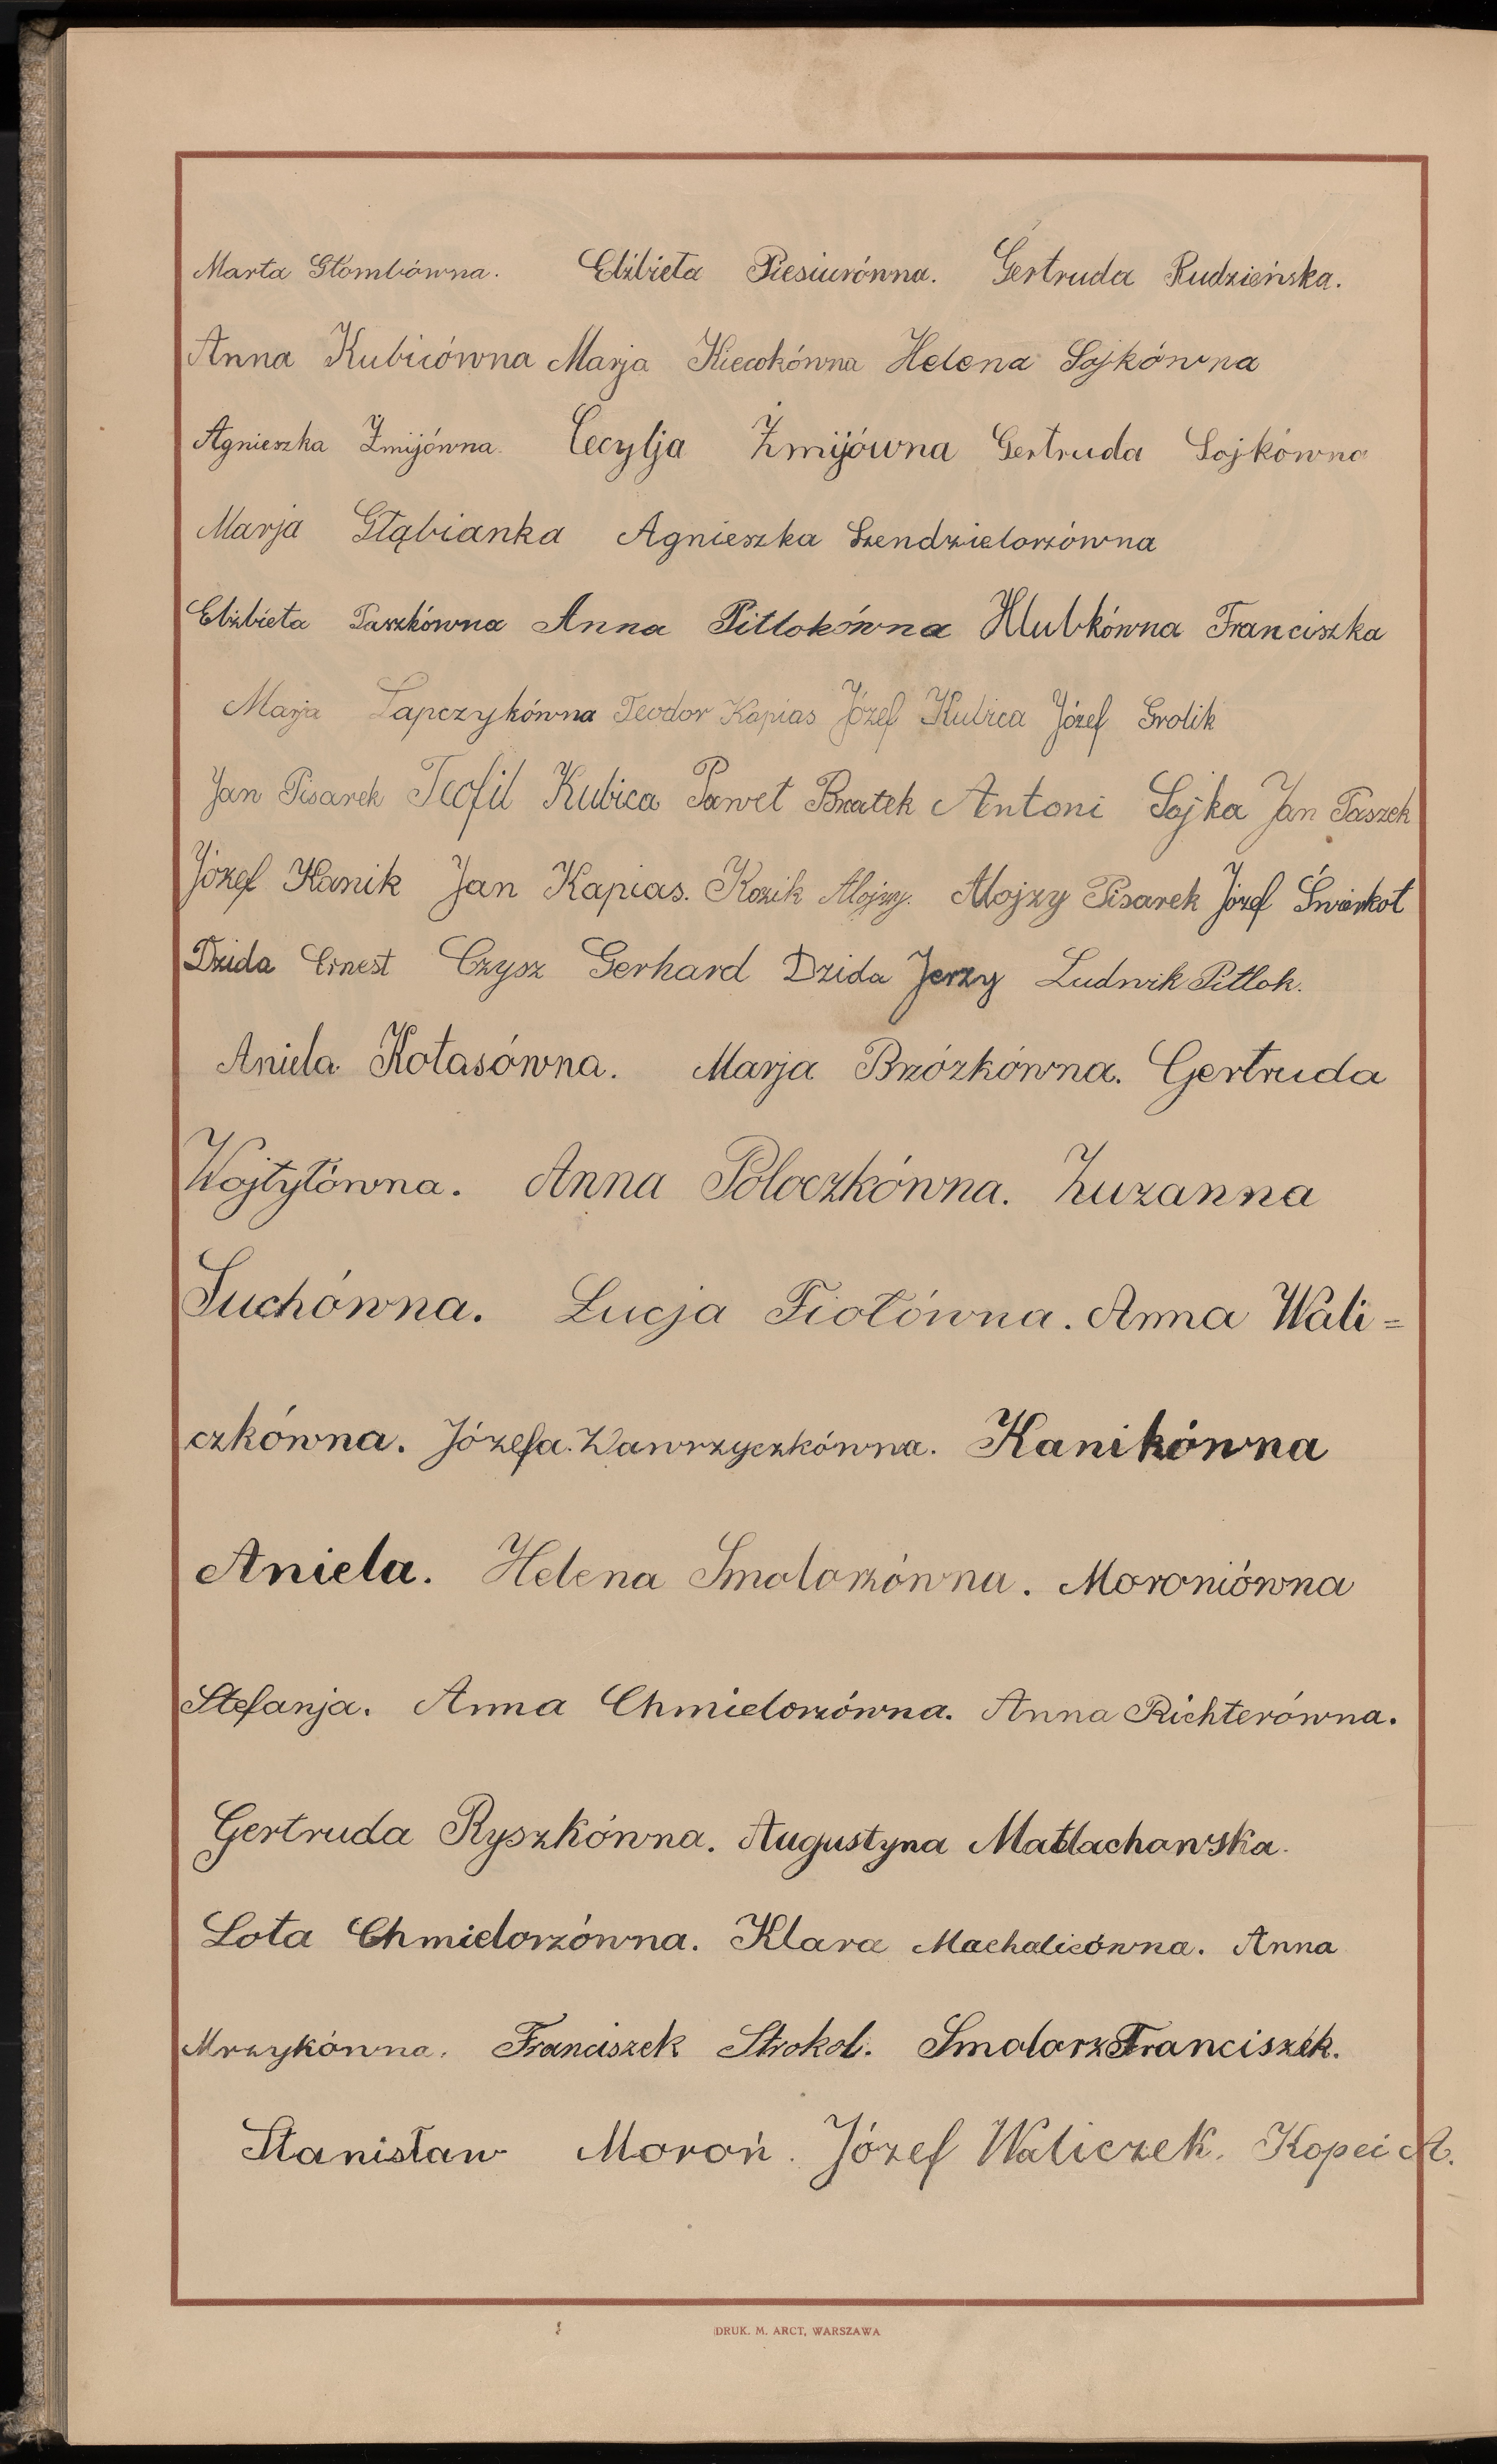 Marta Głombówna. Elżbieta Piesiurówna. Gertruda Rudzieńska.
Anna Kubicówna Marja Kieconkówna Helena Sojkówna
Agnieszka Żmijówna. Cecylja Żmijówna Gertruda Sojkówna
Marja Głąbianka Agnieszka Szendzielorzówna
Elżbieta Paszkówna Anna Pitlokówna Hlubkówna Franciszka
Marja Łapczykówna Teodor Kapias Józef Kubica Józef Grolik
Jan Pisarek Teofil Kubica Paweł Bratek Antoni Sojka Jan Paszek
Józef Kanik Jan Kapias. Kozik Alojzy. Alojzy Pisarek Józef Świerkot
Dzida Ernest Czysz Gerhard Dzida Jerzy Ludwik Pitlok.
Aniela Kotasówna. Marja Brzózkówna. Gertruda
Wojtyłówna. Anna Poloczkówna. Zuzanna
Suchówna. Łucja Fiołówna. Anna Wali=
czkówna. Józefa Wawrzyczkówna. Kanikówna
Aniela. Helena Smolorzówna. Moroniówna
Stefanja. Anna Chmielorzówna. Anna Richterówna.
Gertruda Ryszkówna. Augustyna Matlachowska.
Lota Chmielorzówna. Klara Machalicówna. Anna
Mrzykówna. Franciszek Strokol. Smolorz Franciszek.
Stanisław Moroń. Józef Waliczek. Kopei A.
DRUK. M. ARCT, WARSZAWA